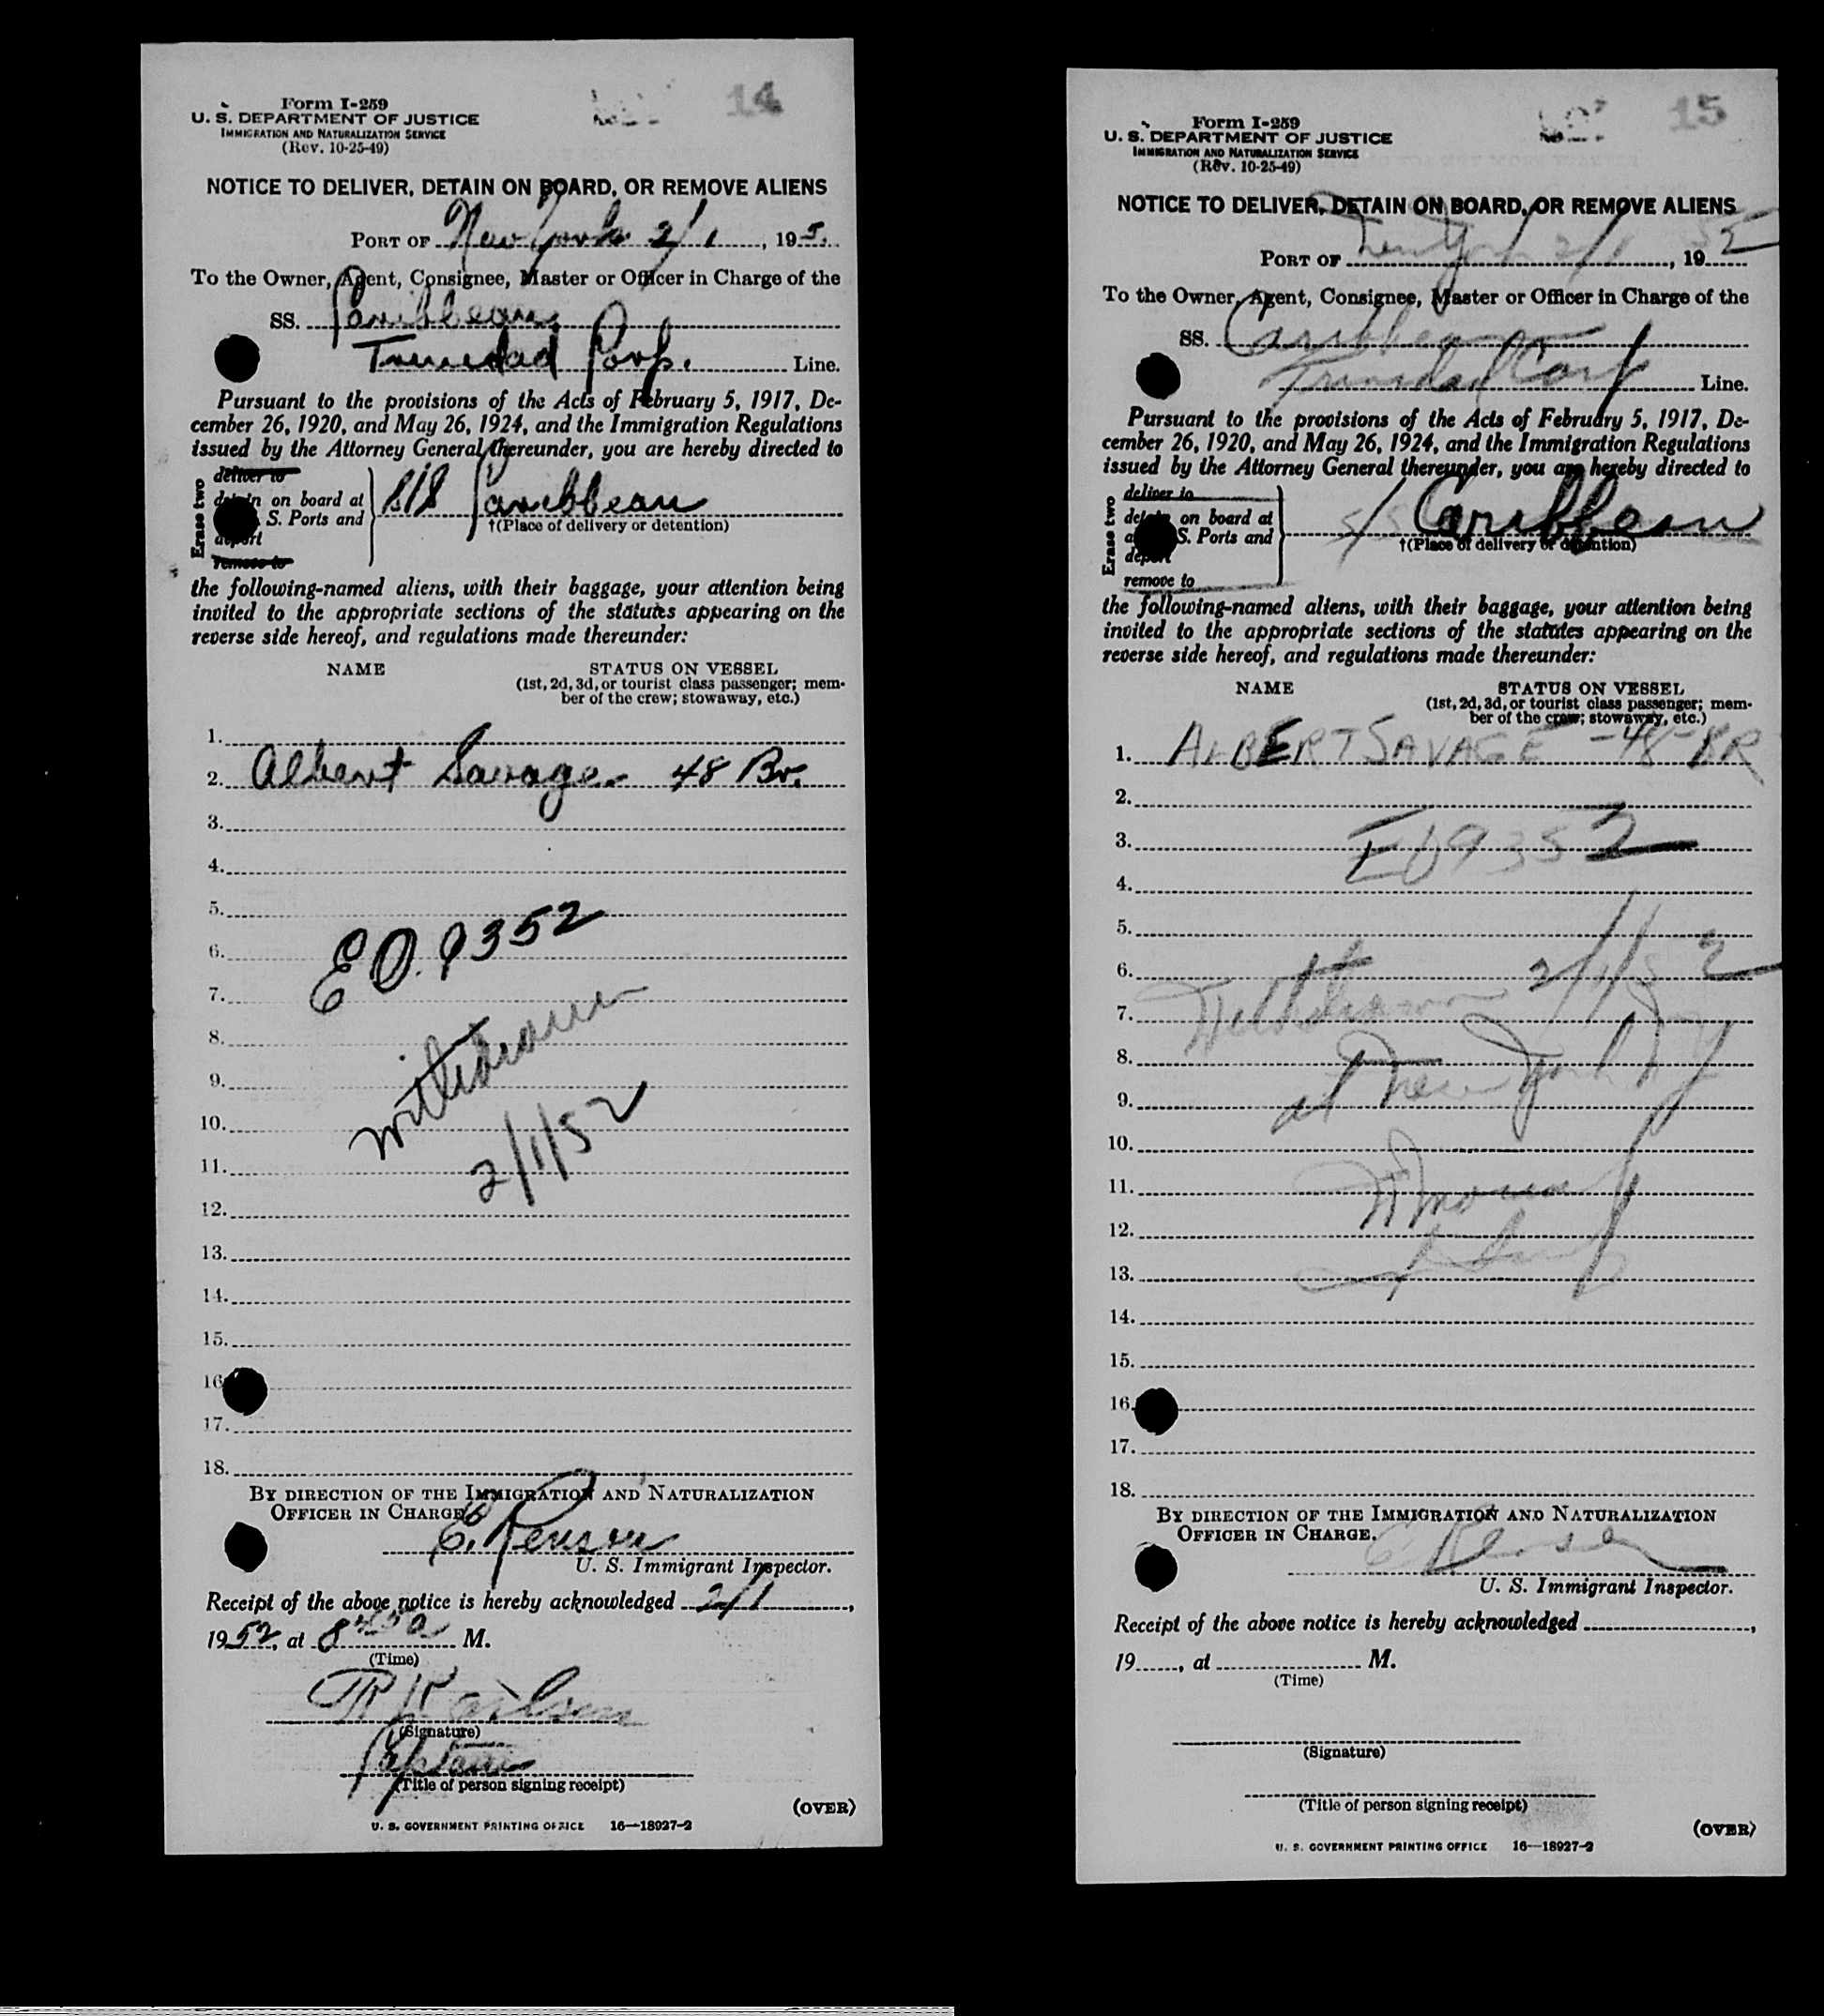 14
Form I-259
U. S. DEPARTMENT OF JUSTICE
IMMIGRATION AND NATURALIZATION SERVICE
(Rev. 10-25-49)
NOTICE TO DELIVER, DETAIN ON BOARD, OR REMOVE ALIENS
PORT OF New York 2/1, 195
To the Owner, Agent, Consignee, Master or Officer in Charge of the
SS. Caribbean
Trinidad Corp. Line.
Pursuant to the provisions of the Acts of February 5, 1917, De-
cember 26, 1920, and May 26, 1924, and the Immigration Regulations
issued by the Attorney General thereunder, you are hereby directed to
Erase two
deliver to
detain on board at
S. Ports and
deport
remove to
S/S Caribbean
†(Place of delivery or detention)
the following-named aliens, with their baggage, your attention being
invited to the appropriate sections of the statutes appearing on the
reverse side hereof, and regulations made thereunder:
NAME STATUS ON VESSEL
(1st, 2d, 3d, or tourist class passenger; mem-
ber of the crew; stowaway, etc.)
1.
2. Albert Savage 48 Br.
3.
4.
5.
6. EO. 9352
7.
8.
9. withdrawn
10.
11. 2/1/52
12.
13.
14.
15.
16
17.
18.
BY DIRECTION OF THE IMMIGRATION AND NATURALIZATION
OFFICER IN CHARGE.
E. Renson
U. S. Immigrant Inspector.
Receipt of the above notice is hereby acknowledged 2/1,
1952, at 8 45 a M.
(Time)
(Signature)
Captain
(Title of person signing receipt)
(OVER)
U. S. GOVERNMENT PRINTING OFFICE 16—18927-2
15
Form I-259
U. S. DEPARTMENT OF JUSTICE
IMMIGRATION AND NATURALIZATION SERVICE
(Rev. 10-25-49)
NOTICE TO DELIVER, DETAIN ON BOARD, OR REMOVE ALIENS
PORT OF New York 2/1 52, 19 
To the Owner, Agent, Consignee, Master or Officer in Charge of the
SS. Caribbean
Trinidad Corp Line.
Pursuant to the provisions of the Acts of February 5, 1917, De-
cember 26, 1920, and May 26, 1924, and the Immigration Regulations
issued by the Attorney General thereunder, you are hereby directed to
Erase two
deliver to
on board at
S. Ports and
deport
remove to
S/S Caribbean
†(Place of delivery or detention)
the following-named aliens, with their baggage, your attention being
invited to the appropriate sections of the statutes appearing on the
reverse side hereof, and regulations made thereunder:
NAME STATUS ON VESSEL
(1st, 2d, 3d, or tourist class passenger; mem-
ber of the crew; stowaway, etc.)
1. ALBERT SAVAGE - 48 - BR
2.
3. EO 9352
4.
5.
6. 2/1/52
7. Withdrawn
8.
9. at New York NY
10.
11.
12.
13.
14.
15.
16.
17.
18.
BY DIRECTION OF THE IMMIGRATION AND NATURALIZATION
OFFICER IN CHARGE.
E Renson
U. S. Immigrant Inspector.
Receipt of the above notice is hereby acknowledged ,
19 , at M.
(Time)
(Signature)
(Title of person signing receipt)
(OVER)
U. S. GOVERNMENT PRINTING OFFICE 16—18927-2